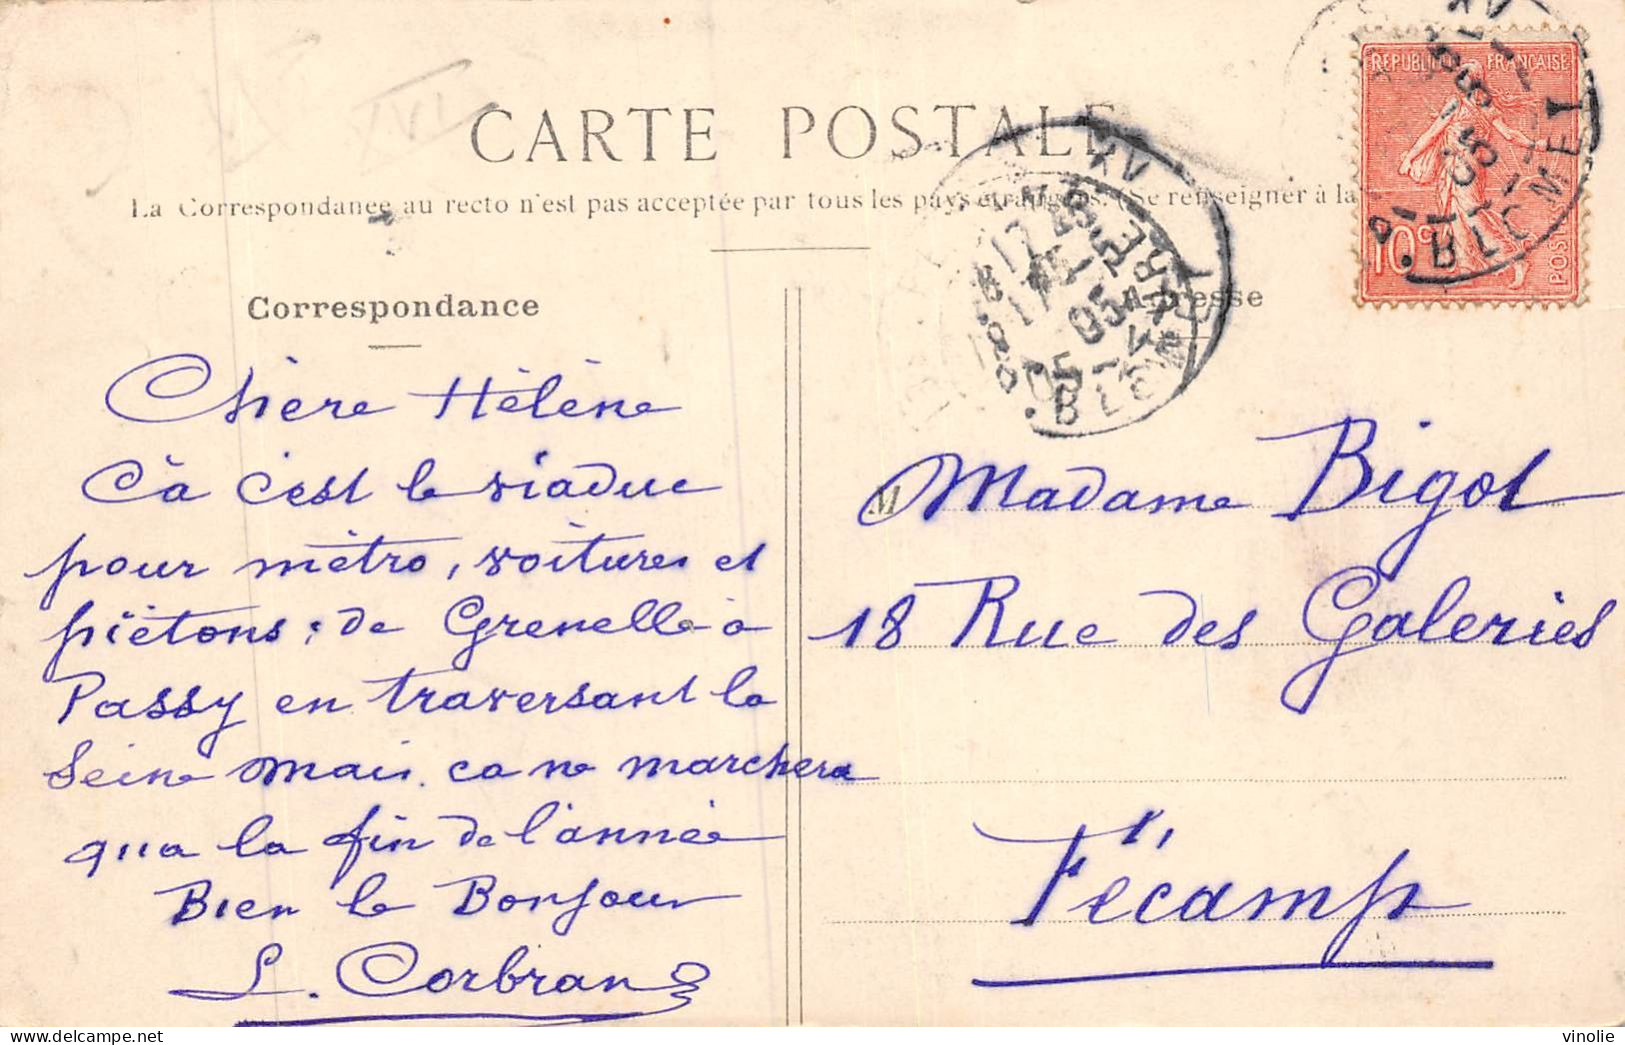 CARTE POSTALE
La Correspondance au recto n'est pas acceptée par tous les pays étrangers. (Se renseigner à la
Correspondance
Chère Hélène
Cà c'est le viaduc
pour métro, voitures et
piétons : de Grenelle à
Passy en traversant la
Seine mais ca ne marchera
qu'a la fin de l'année
Bien le Bonjour
L. Corbran
Adresse
M
Madame Bigot
18 Rue des Galeries
Fécamp
REPUBLIQUE FRANÇAISE
10c
POSTES
BLOMET
05
vinolie